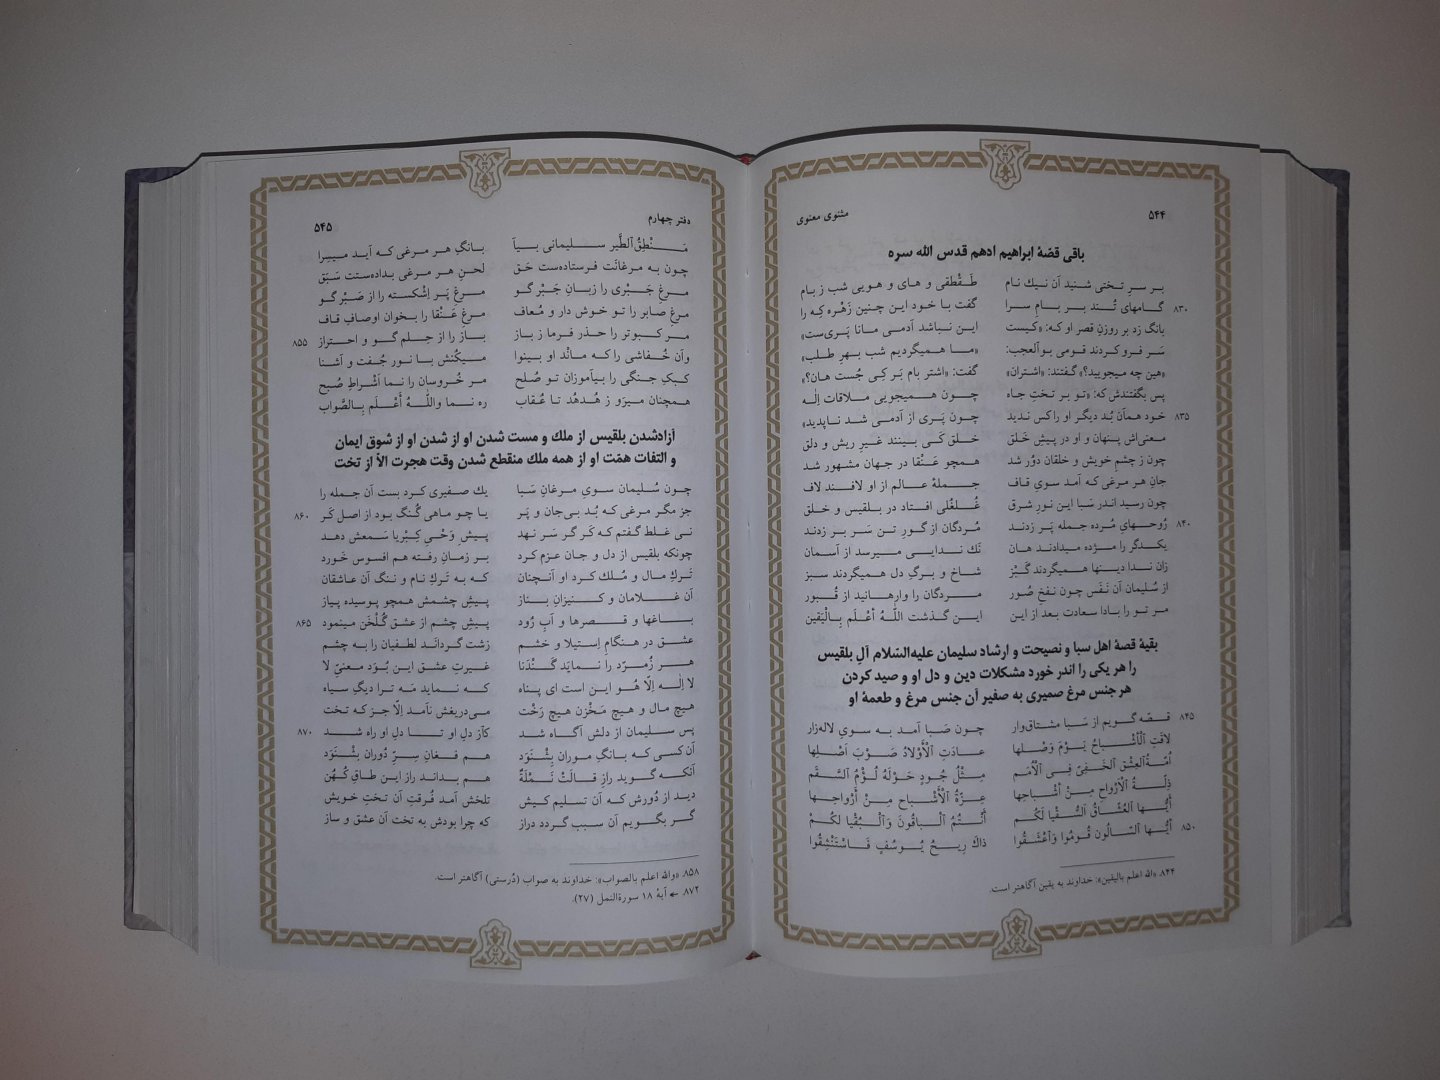 ۵۴۴
مثنوی معنوی
باقی قصّهٔ ابراهیم ادهم قدس الله سره
بر سرِ تختی شنید آن نیك نام طَقْطقی و های و هویی شب ز بام
گامهای تُند بر بامِ سرا گفت با خود این چنین زَهْره کِه را ۸۳۰
بانگ زد بر روزنِ قصر او که: «کیست این نباشد آدمی مانا پَری‌ست»
سَر فرو کردند قومی بوآلعجب: «ما همیگردیم شب بهرِ طلب»
«هین چه میجویید؟» گفتند: «اشتران» گفت: «اشتر بام بَر کِی جُست هان؟»
پس بگفتندش که: «تو بر تختِ جاه چون همیجویی ملاقات اِلٰه
خود همآن بُد دیگر او را کس ندید چون پَری از آدمی شد ناپدید» ۸۳۵
معنی‌اش پنهان و او در پیشِ خَلق خلق کَی بینند غیرِ ریش و دلق
چون ز چشمِ خویش و خلقان دوُر شد همچو عَنْقا در جهان مشهور شد
جانِ هر مرغی که آمد سویِ قاف جملهٔ عالم از او لافند لاف
چون رسید اندر سَبا این نورِ شرق غُلغُلی افتاد در بلقیس و خلق
رُوحهایِ مُرده جمله پَر زدند مُردگان از گورِ تن سَر بر زدند ۸۴۰
یکدگر را مژده میدادند هان نَك ندایی میرسد از آسمان
زان ندا دینها همیگردند گَبْز شاخ و برگِ دل همیگردند سبز
از سُلیمان آن نَفَس چون نفخِ صُور مردگان را وارهانید از قُبور
مر تو را بادا سعادت بعد از این این گذشت اللّٰهُ أَعْلَم بِالْیَقین
بقیهٔ قصهٔ اهل سبا و نصیحت و ارشاد سلیمان علیه‌السّلام آلِ بلقیس
را هر یکی را اندر خورد مشکلات دین و دل او و صید کردن
هر جنس مرغ ضمیری به صفیر آن جنس مرغ و طعمهٔ او
قصّه گویم از سَبا مشتاق‌وار چون صَبا آمد به سویِ لاله‌زار ۸۴۵
لاقَتِ ٱلْأَشْباحُ یَوْمَ وَصْلِها عادَتِ ٱلْأَوْلادُ صَوْبَ أَصْلِها
أُمَّةُ ٱلعِشْقِ ٱلخَفِیِّ فِی ٱلْأُمَم مِثْلُ جُودٍ حَوْلَهُ لُؤْمُ ٱلسَّقَم
ذِلَّةُ ٱلْأَرْواحِ مِنْ أَشْباحِها عِزَّةُ ٱلْأَشْباحِ مِنْ أَرْواحِها
أَیُّها ٱلعُشّاقُ ٱلسُّقْیا لَکُم أَنْتُمُ ٱلْباقُونَ وَٱلْبُقْیا لَکُمْ
أَیُّها ٱلسّالُونَ قُومُوا وَٱعْشَقُوا ذاكَ رِیحُ یُوسُفٍ فَاسْتَنْشِقُوا ۸۵۰
۸۴۴. «الله اعلم بالیقین»: خداوند به یقین آگاهتر است.
دفتر چهارم
۵۴۵
مَنْطِقُ ٱلطَّیرِ سلیمانی بیآ بانگِ هر مرغی که آید میسِرا
چون به مرغانَت فرستاده‌ست حَق لحنِ هر مرغی بداده‌ستت سَبَق
مرغِ جَبْری را زبانِ جَبْر گو مرغِ پَر اِشْکسته را از صَبْر گو
مرغِ صابر را تو خوش دار و مُعاف مرغِ عَنْقا را بخوان اوصافِ قاف
مر کبوتر را حذر فرما ز باز باز را از حِلم گو و احتراز ۸۵۵
وآن خُفاشی را که مانْد او بینوا میکُنش با نور جُفت و آشنا
کبكِ جنگی را بیآموزان تو صُلح مر خُروسان را نما اَشْراطِ صُبح
همچنان میرَو ز هُدهُد تا عُقاب ره نما واللّٰهُ أَعْلَم بِالصَّواب
آزادشدن بلقیس از ملك و مست شدن او از شدن او از شوق ایمان
و التفات همّت او از همه ملك منقطع شدن وقت هجرت الاّ از تخت
چون سُلیمان سویِ مرغانِ سَبا یك صفیری کرد بست آن جمله را
جز مگر مرغی که بُد بی‌جان و پَر یا چو ماهی گُنگ بود از اصل کَر ۸۶۰
نی غلط گفتم که کَر گر سَر نهد پیشِ وَحْیِ کِبْریا سَمعش دهد
چونکه بلقیس از دل و جان عزم کرد بر زمانِ رفته هم افسوس خَورد
تَرکِ مال و مُلك کرد او آنچنان که به تَركِ نام و ننگ آن عاشقان
آن غلامان و کنیزانِ بناز پیشِ چشمش همچو پوسیده پیاز
باغها و قصرها و آبِ رُود پیشِ چشم از عشق گُلْخَن مینمود ۸۶۵
عشق در هنگامِ اِستیلا و خشم زشت گرداند لطفیان را به چشم
هر زُمرّد را نمایَد گَنْدَنا غیرتِ عشق این بُوَد معنیِ لا
لا اِلٰه اِلّا هُو این است ای پناه که نماید مَه ترا دیگِ سیاه
هیچ مال و هیچ مَخْزن هیچ رَخْت می دریغش نآمد اِلّا جز که تخت
پس سلیمان از دلش آگاه شد کآز دلِ او تا دلِ او راه شد ۸۷۰
آن کسی که بانگِ موران بِشْنَوَد هم فغانِ سِرِّ دُوران بِشْنَوَد
آنکه گوید رازِ قالَتْ نَمْلَةٌ هم بداند رازِ این طاقِ کُهُن
دید از دُورش که آن تسلیم کیش تلخش آمد فُرقتِ آن تختِ خویش
گر بگویم آن سبب گردد دراز که چرا بودش به تخت آن عشق و ساز
۸۵۸. «والله اعلم بالصواب»: خداوند به صواب (دُرستی) آگاهتر است.
۸۷۲. ← آیهٔ ۱۸ سورةالنمل (۲۷).